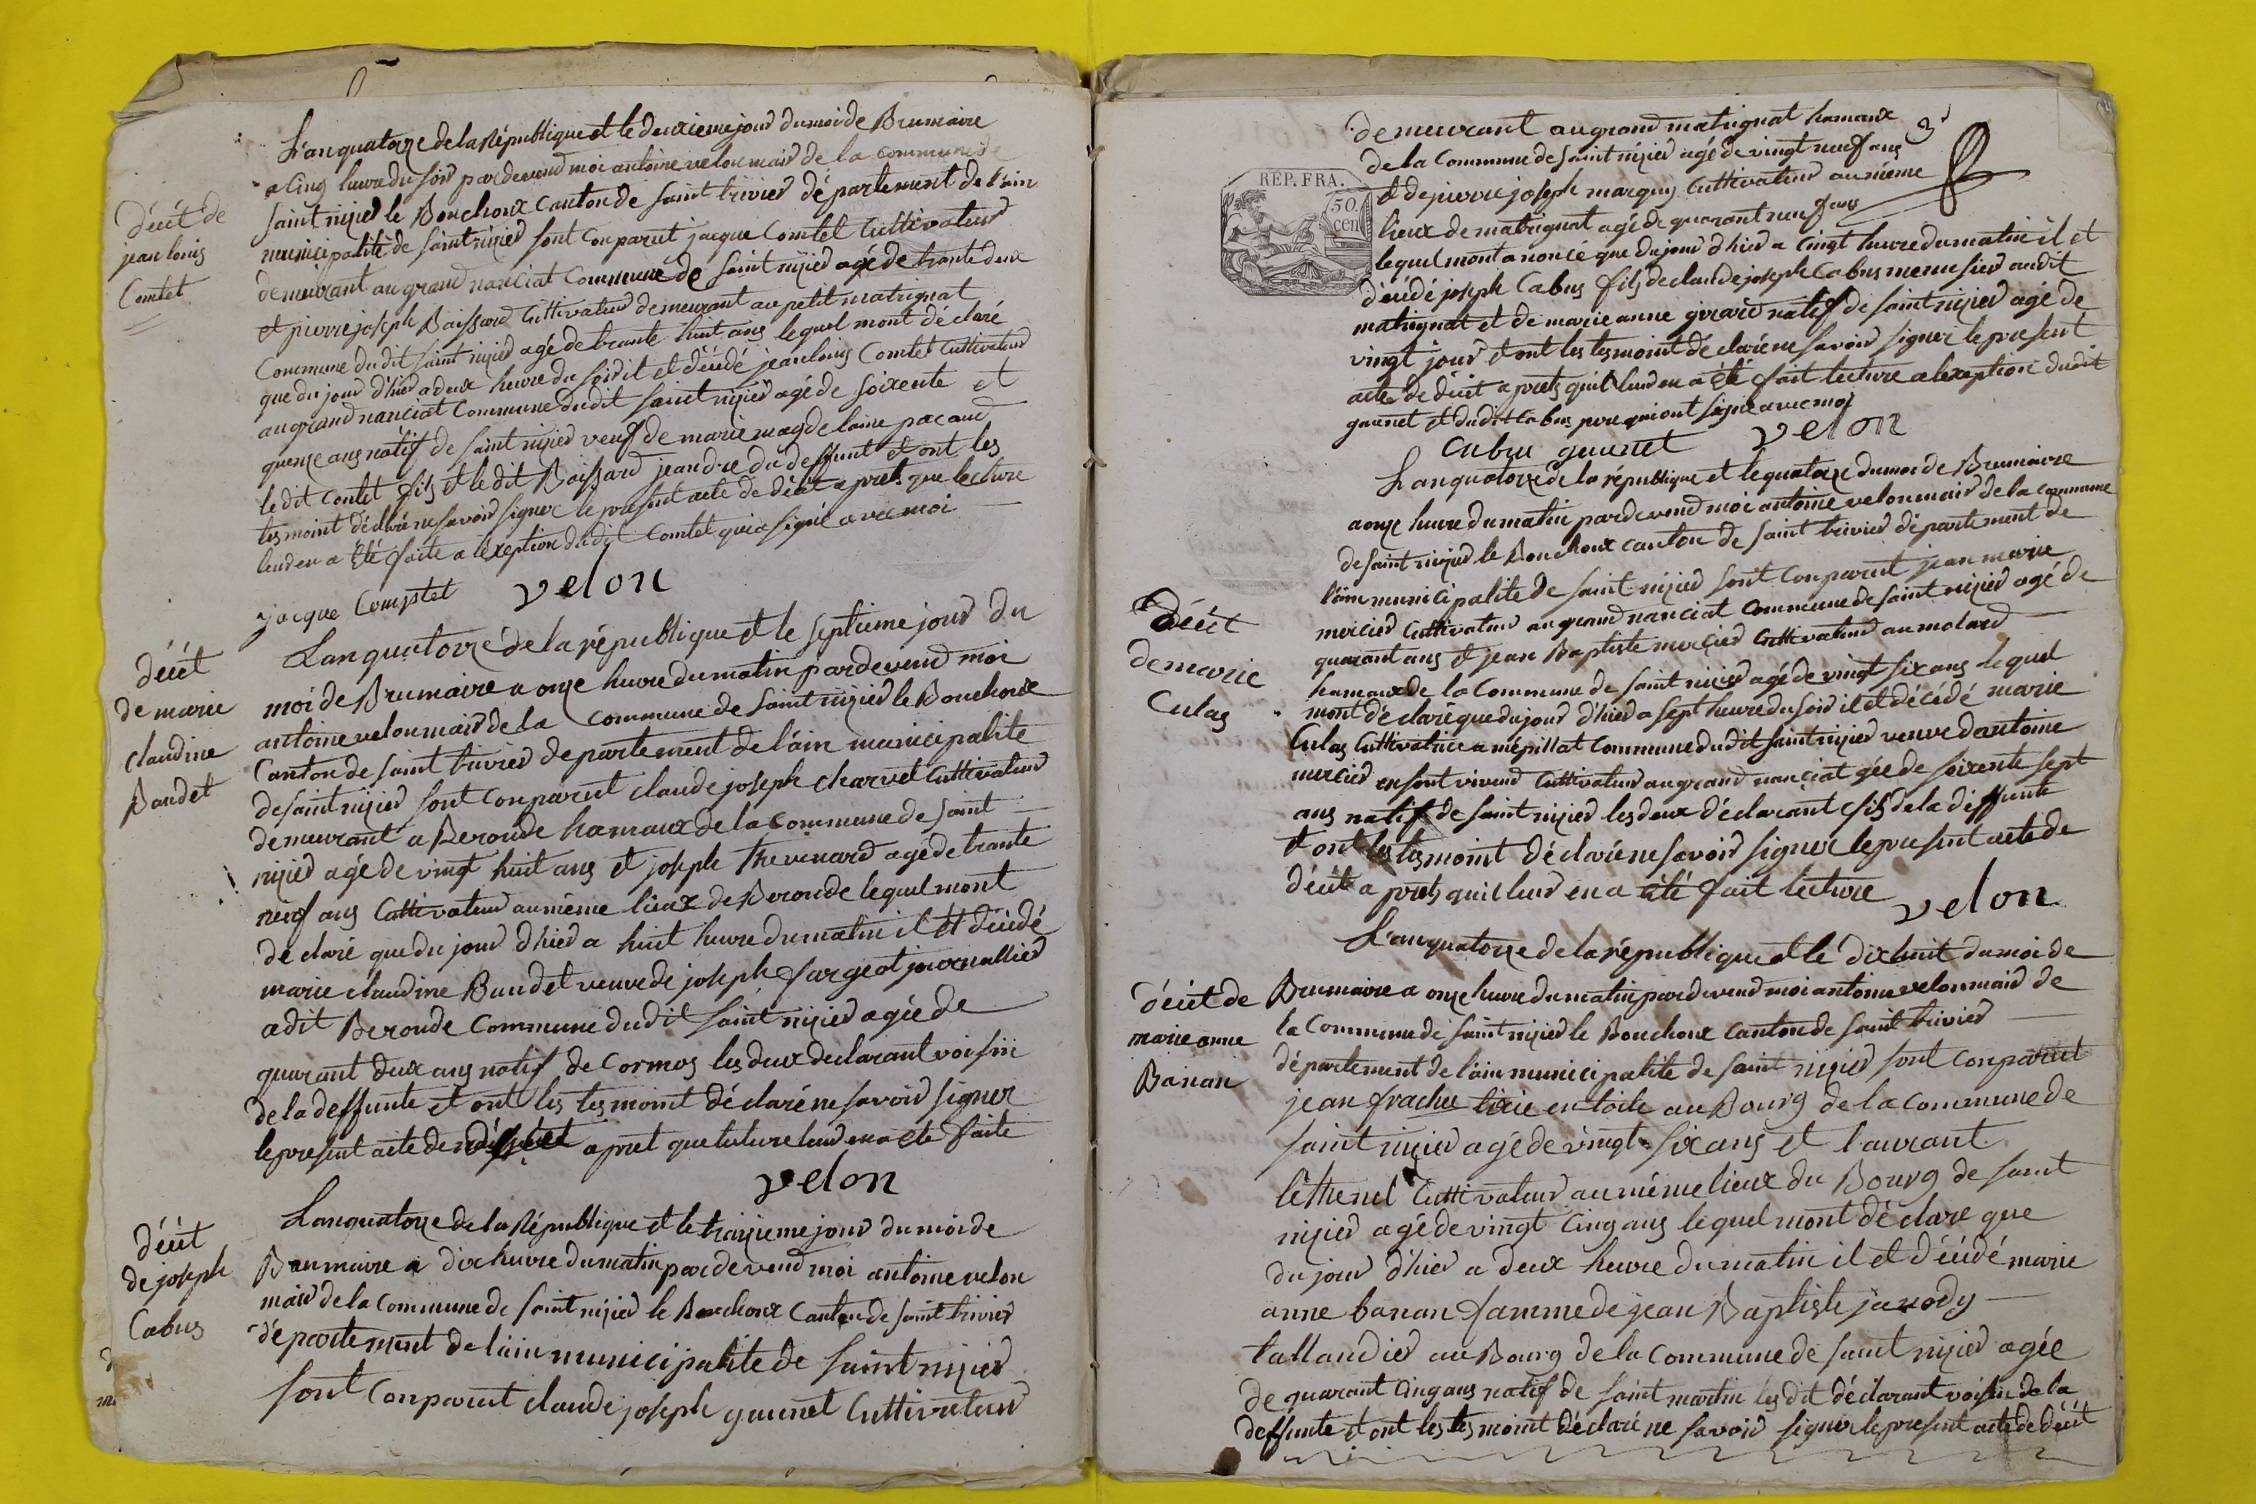 L'an quatorze de la République et le deuxieme jour du moi de Brumaire
a cinq heure du soir par devend moi antoine velon mair de la commune de
saint nizied le Bouchoux canton de saint trivier département de l'ain
municipalité de saint nizied sont conparut jacque Comtet Cultivateur
demeurant au grand nanciat commune de saint nizied agé de trante deux
et pierre joseph Baissard Cultivateur demeurant au petit matrignat
Commune dudit saint nizied agé de trante huit ans lequel mont déclaré
que du jour d'hier a deux heure du soir il et décédé jean louis Comtet Cultivateur
au grand nanciat Commune dudit saint nizied agé de soixente et
quenze ans natif de saint nizied veuf de marie magdelaine pacaud
ledit contet fils et le dit Baissard jeandre du deffunt et ont les
tesmoint déclaré ne savoir signer le present acte de décet a prets que lecture
leud en a été faite a l'exeption dudit Comtet qui a signé avec moi
jacque Comptet velon
décét de
jean louis
Comtet
L'an quatorze de la république et le septieme jour du
moi de Brumaire a onze heure du matin par devend moi
antoine velon mair de la commune de saint nizied le Bouchoux
Canton de saint trivier departement de l'ain municipalite
de saint nizied sont conparut claude joseph charvet Cultivateur
demeurant a Beronde hamaux de la commune de saint
nizied agé de vingt huit ans et joseph thevenard agé de trante
neuf ans Cultivateur au même lieux de Beronde lequel mont
declaré que du jour d'hier a huit heure du matin il et décédé
marie claudine Baudet veuve de joseph fargeot journallier
a dit Beronde Commune dudit saint nizied agée de
quarant deux ans natif de Cormos les deux declarant voisin
de la deffunte et ont les tesmoint déclaré ne savoir signer
le present acte de apret que lecture leud en a ete faite
velon
décét
de marie
claudine
Baudet
L'an quatorze de la République et le traizieme jour du moi de
Brumaire a dix heure du matin par devend moi antoine velon
mair de la Commune de saint nizied le Bouchoux Canton de saint trivier
département de l'ain municipalité de saint nizied
sont Conparut claude joseph gaunet Cultivateur
décét
de joseph
Cabus
3
REP. FRA.
50
cen
demeurant au grand matrignat hamaux
de la Commune de saint nizied agé de vingt neuf ans
et de pierre joseph marguy Cultivateur au même
lieux de matrignat agé de quarant neuf ans
lequel mont anoncé que du jour d'hier a Cinqt heure du matin il et
décédé joseph Cabus fils de claude joseph Cabus menusier audit
matrignat et de marie anne girard natif de saint nizied agé de
vingt jour et ont les tesmoint déclaré ne savoir signer le present
acte de décét a prets qu'il leud en a été fait lecture a l'exeption dudit
gaunet et dudit Cabus pere qui ont signé avec moi
Cabu gaunet velon
L'an quatorze de la république et le quatorze du moi de Brumaire
a onze heure du matin par devend moi antoine velon mair de la commune
de saint nizied le Bouchoux canton de saint trivier département de
l'ain municipalité de saint nizied sont conparut jean marie
mercier Cultivateur au grand nanciat commune de saint nizied agé de
quarant ans et jean Baptiste mercier Cultivateur au molard
hamaux de la Commune de saint nizied agé de vingt six ans lequel
mont déclaré que du jour d'hier a sept heure du soir il et décédé marie
Culas Cultivatrice a mépillat commune dudit saint nizied veuve d'antoine
mercier en sont vivend Cultivateur au grand nanciat gée de soixente sept
ans natif de saint nizied les deux déclarant fils de la deffunte
et ont les tesmoint déclaré ne savoir signer le present acte de
décét a prets qu'il leur en a été fait lecture velon
Décét
de marie
Culas
L'an quatorze de la république et le dix huit du moi de
Brumaire a onze heure du matin par devend moi antoine velon mair de
la Commune de saint nizied le Bouchoux canton de saint trivier
département de l'ain municipalité de saint nizied sont conparut
jean frachee en toile au Bourg de la commune de
saint nizied agé de vingt six ans et laurant
lethenet Cultivateur au même lieux du Bourg de saint
nizied agé de vingt Cinq ans lequel mont déclare que
du jour d'hier a deux heure du matin il et décédé marie
anne banan famme de jean Baptiste javody
tallandier au Bourg de la commune de saint nizied agée
de quarant Cinq ans natif de saint martin les dit déclarant voisin de la
deffunte et ont les tesmoint déclaré ne savoir signer le present acte de décét
décét de
marie anne
Banan